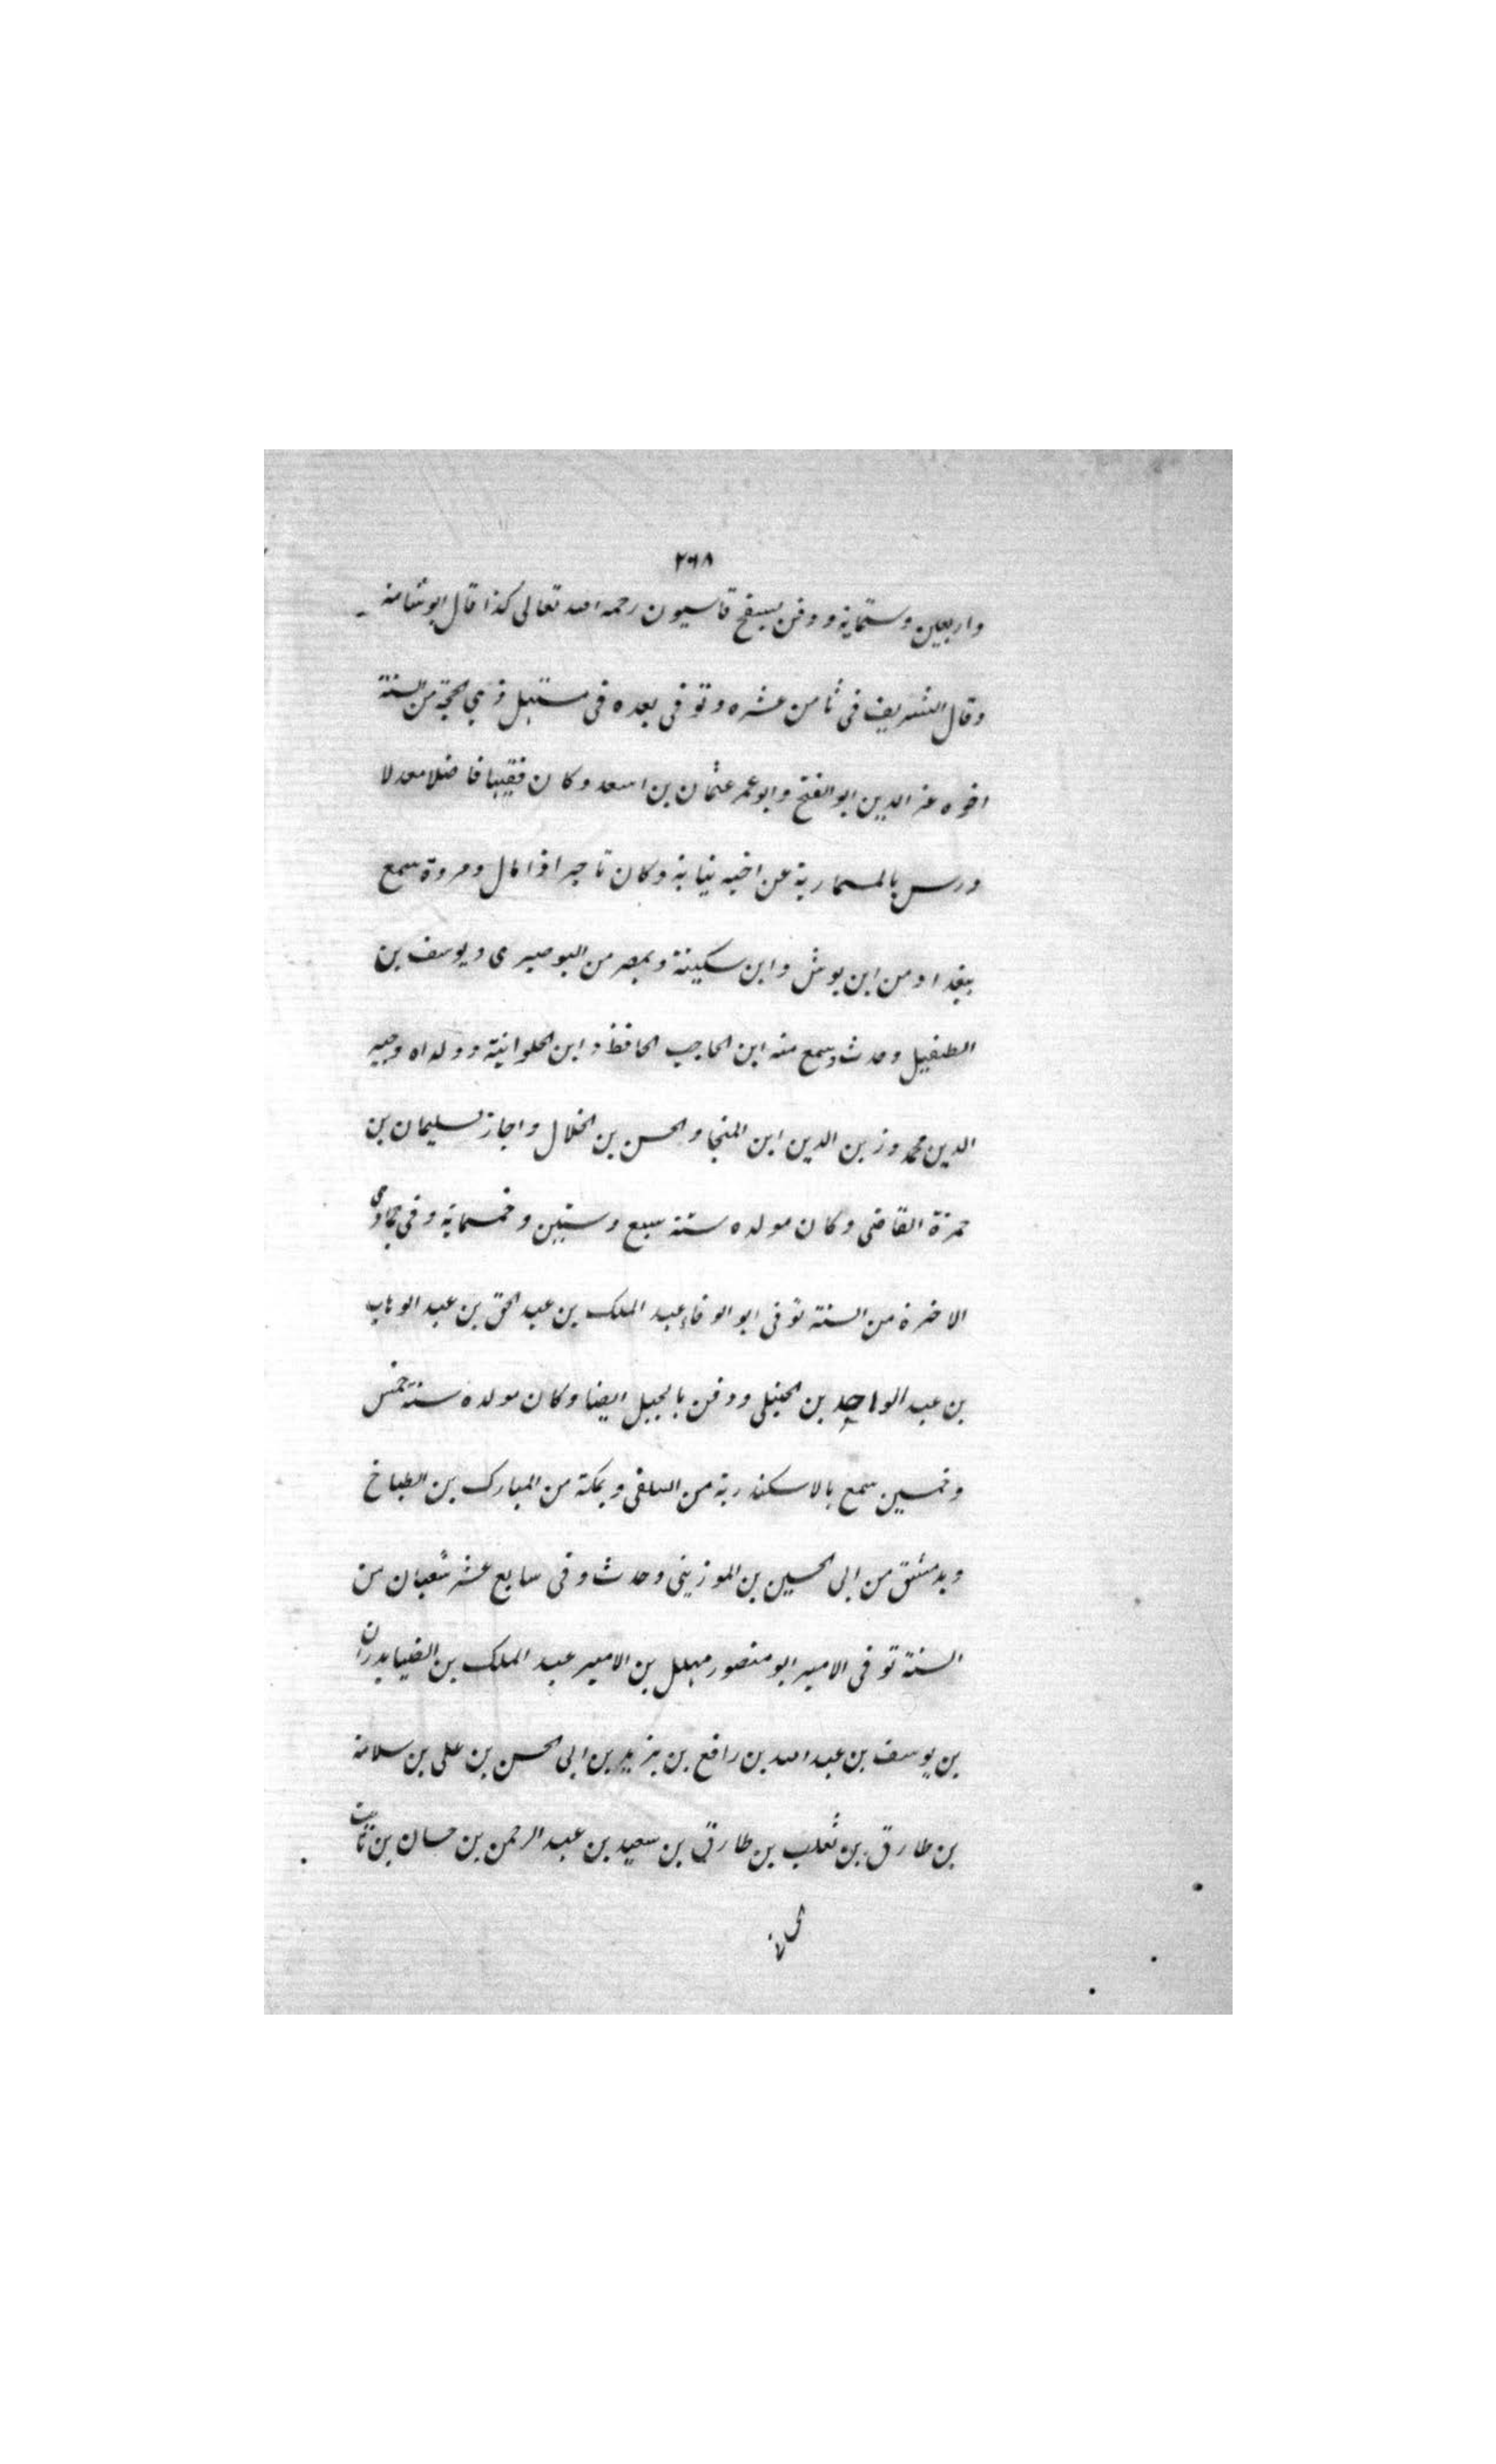 ٢٦٨
واربعين وستماية ودفن بسفح قاسيون رحمه الله تعالى كذا قال ابو شامة
وقال الشريف فى ثامن عشره وتوفى بعده فى مستهل ذي الحجة من السنة
اخوه عز الدين ابو الفتح وابو عمر عثمان بن اسعد وكان فقيها فاضلا معدلا
درس بالمسمارية عن اخيه نيابة وكان تاجرا ذا مال ومروة سمع
ببغداد من ابن بوش وابن سكينة وبمصر من البوصيرى ويوسف بن
الطفيل وحدث وسمع منه ابن الحاجب الحافظ وابن الحلوانية وولداه وجيه
الدين محمد وزين الدين ابن المنجا والحسن بن الخلال واجاز سليمان بن
حمزة القاضى وكان مولده سنة سبع وستين وخمسماية وفى جمادى
الاخرة من السنة توفى ابو الوفاء عبد الملك بن عبد الحق بن عبد الوهاب
بن عبد الواحد بن الحنبلى ودفن بالجبل ايضا وكان مولده سنة خمس
وخمسين سمع بالاسكندرية من السلفى وبمكة من المبارك بن الطباخ
وبدمشق من ابى الحسين بن الموزينى وحدث وفى سابع عشر شعبان من
السنة توفى الامير ابو منصور مهلل بن الامير عبد الملك بن الضيا بدران
بن يوسف بن عبد الله بن رافع بن يزيد بن ابى الحسن بن على بن سلامة
بن طارق بن ثعلب بن طارق بن سعيد بن عبد الرحمن بن حسان بن ثابت